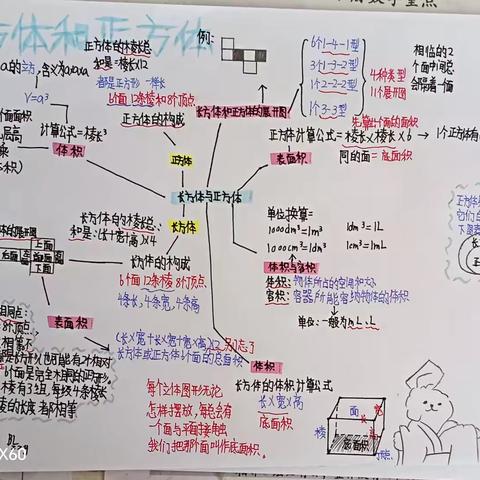 方体和正方体
重点
例:
正方体的棱长总
和是=棱长×12
都是正方形 一样长
6个面 12条棱和8个顶点
正方体的构成
a的立方,含义为axaxa
V=a³
计算公式=棱长³
体积
正方体
长方体和正方体的展开图
6个1-4-1型
3个1-3-2型
1个2-2-2型
1个3-3型
4种类型
11个展开图
相临的2
个面中间总
先算1个面的面积
正方体计算公式=棱长×棱长×6
表面积
同的面=底面积
长方体与正方体
长方体
长方体的棱长总:
和是:(长+宽+高)×4
长方体的构成
6个面 12条棱 8个顶点
4条长,4条宽,4条高
单位换算=
1000dm³=1m³
1dm³=1L
1000cm³=1dm³
1cm³=1mL
体积与容积
体积:物体所占的空间和大小
容积:容器所能容纳物体的体积
单位:一般为mL、L
上面
下面
表面积
(长×宽+长×宽+宽×高)×2 别忘了
长方体或正方体6个面的总面积
体积
长方体的体积计算公式
长×宽×高
底面积
每个立体图形无论
怎样摆放,每总会有
一个面与平面接触
我们把那个面叫作底面积。
面
宽
高
棱
底面积
X60